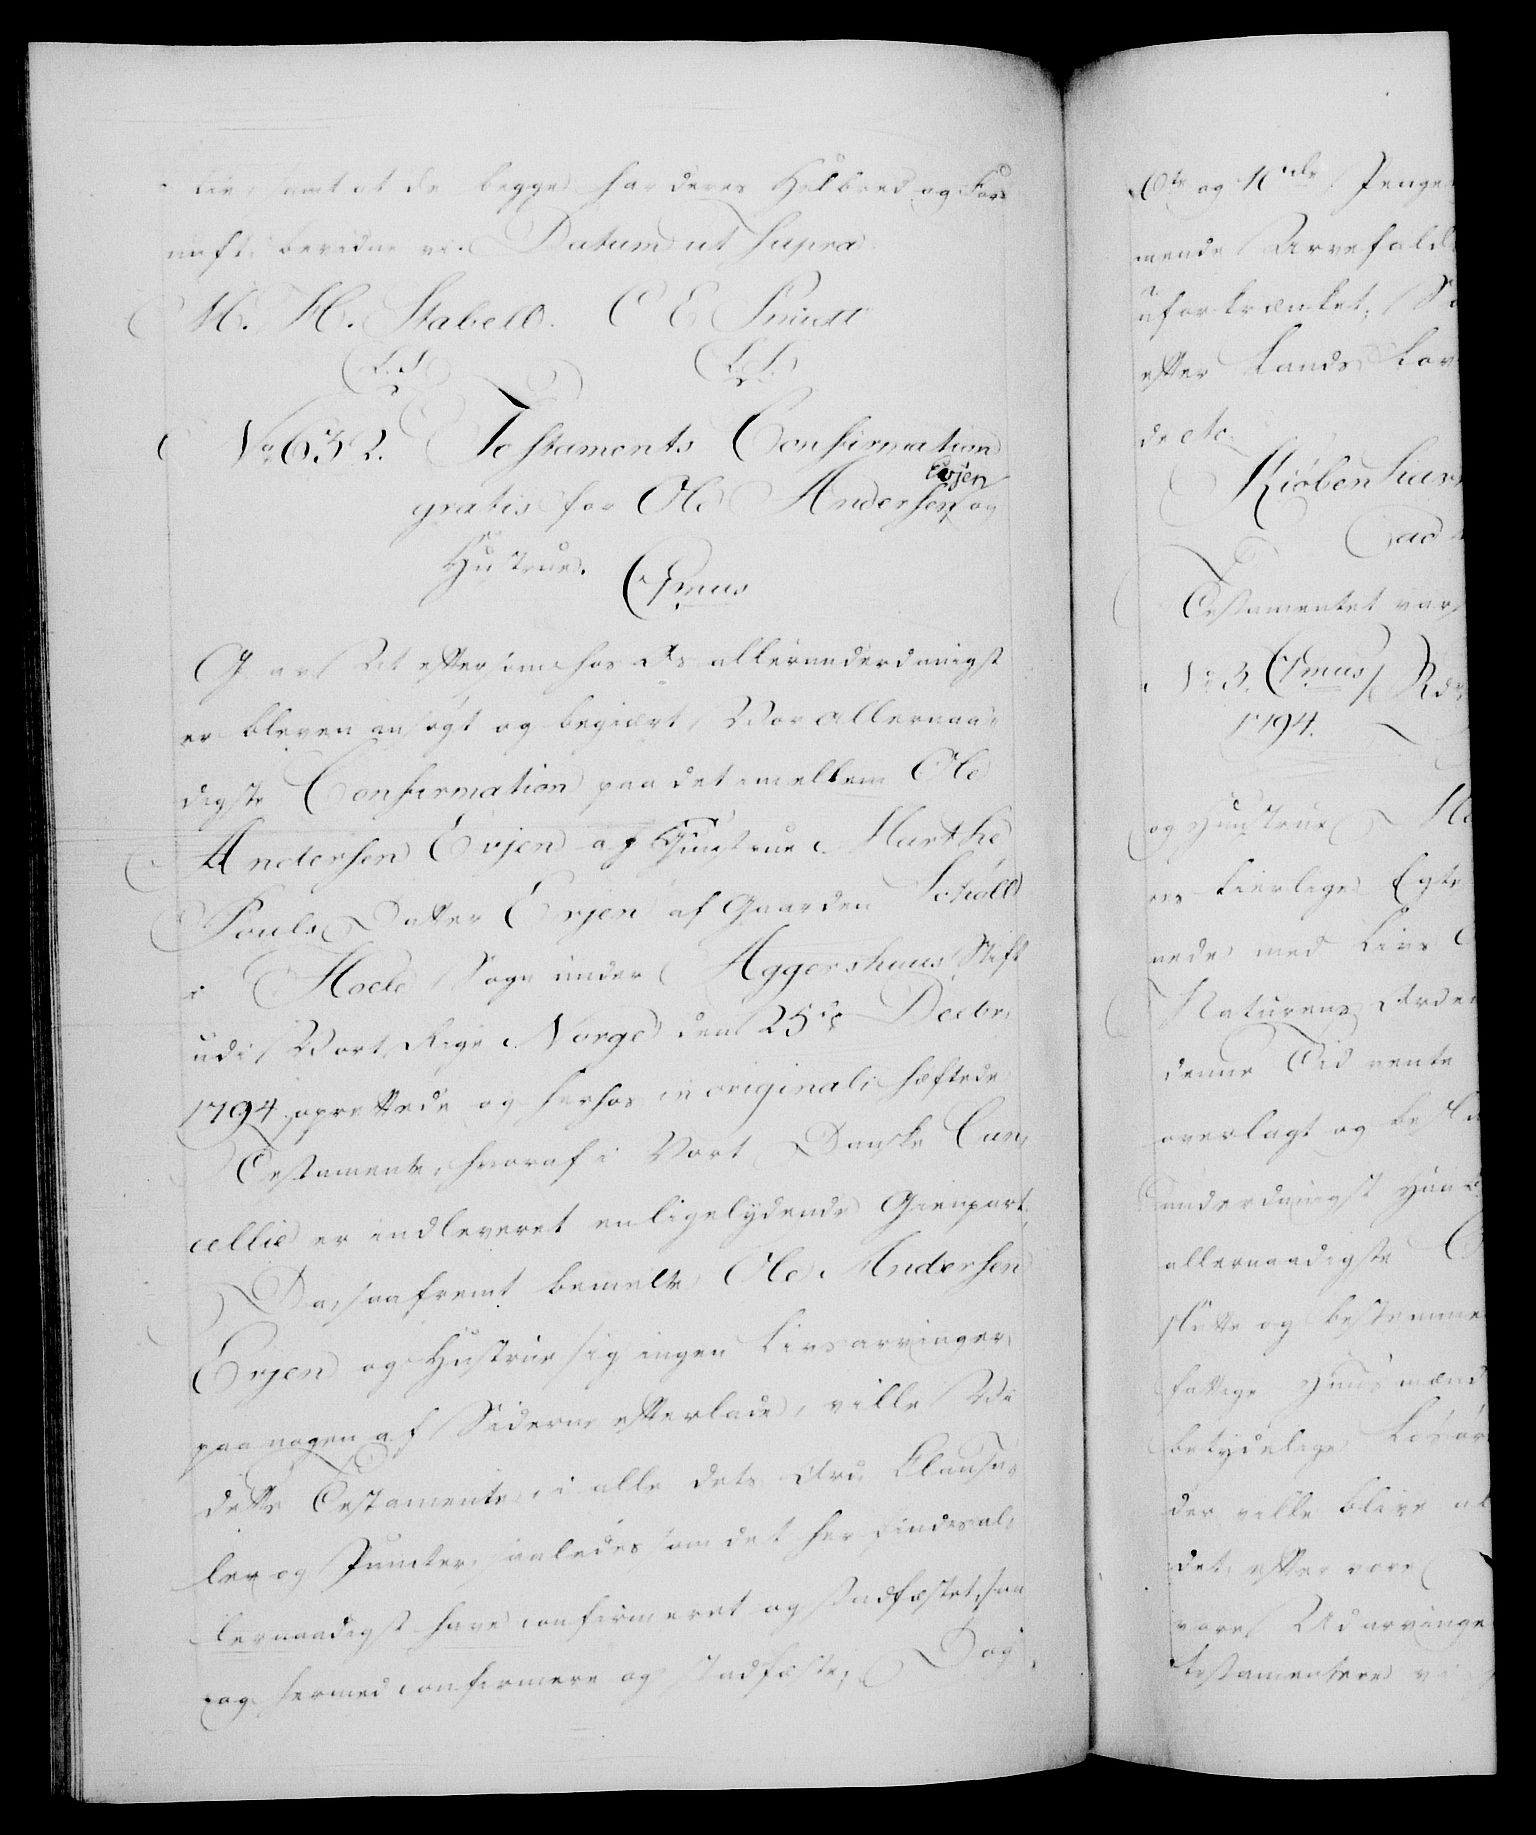 Liv, samt at de begge har deres Helbred og For-
nuft, bevidne vi. Datum ut supra
M. H. Stabell. C E
(L.S) (L.S.)
No 632. Testaments Confirmation
gratis for Ole Andersen Evjen og
Hustrue. C7mus
G ar Vit eftersom hos Os allerunderdanigst
er bleven ansøgt og begiært Vor allernaa-
digste Confirmation paa det imellem Ole
Andersen Evjen og Hustrue Marthe
Pouls Datter Evjen af Gaarden
i Sogn under Aggershuus Stift
udi Vort Rige Norge den 25de Decbr.
1794 oprettede og herhos in originali hæftede
Testamente, hvoraf i Vort Danske Can-
cellie er indleveret en ligelydende Gienpart.
Da, saafremt bemelte Ole Andersen
Evjen og Hustrue sig ingen Livsarvinger
paa nogen af Siderne efterlade, ville Vi
dette Testamente, i alle dets Ord Clausu-
ler og Puncter, saaledes som det her findes al-
lernaadigst have confirmeret og stadfæstet, saa
og hermed confirmere og stadfæste; Dog
Ote og 10de Penge
mende Arvefald
uforkrænket; So
efter Lands Lov
de etc.
Kiøbenhavn
Testamentet var
No 3. C7mus
1794.
og Hustrue
res kierlige Egte
nede med Livs
Naturens Orden
denne Tid vente
overlagt og beslu
underdanigst
allernaadigste C
slutte og bestemme
fattige Huusmænd
betydelige
der ville blive
det, efter vore
vore Udarvinge
testamentere vi